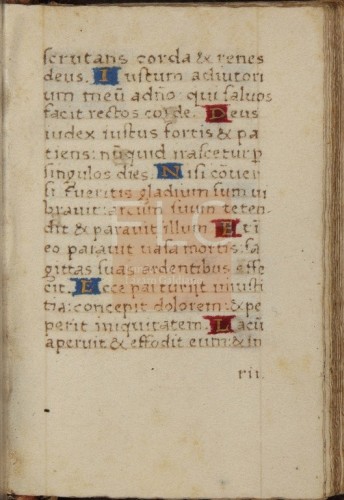 scrutans corda & renes
deus. Iustum adiutori
um meū adño: qui saluos
facit rectos corde. Deus
iudex iustus fortis & pa
tiens: nūquid irascetur p
singulos dies. Nisi cōuer
si fueritis gladium suum ui
brauit: arcum suum teten
dit & parauit illum Et ī
eo parauit uasa mortis: sa
gittas suas ardentibus effe
cit. Ecce parturijt iniusti
tia: concepit dolorem: & pe
perit iniquitatem. Lacū
aperuit & effodit eum: & in